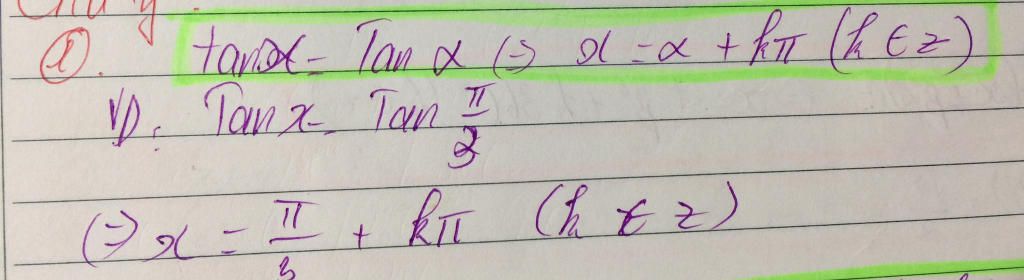 Chú ý
①. tanx = Tan α ⇔ x = α + kπ (k ∈ z)
VD: Tan x = Tan π/3
⇔ x = π/3 + kπ (k ∈ z)